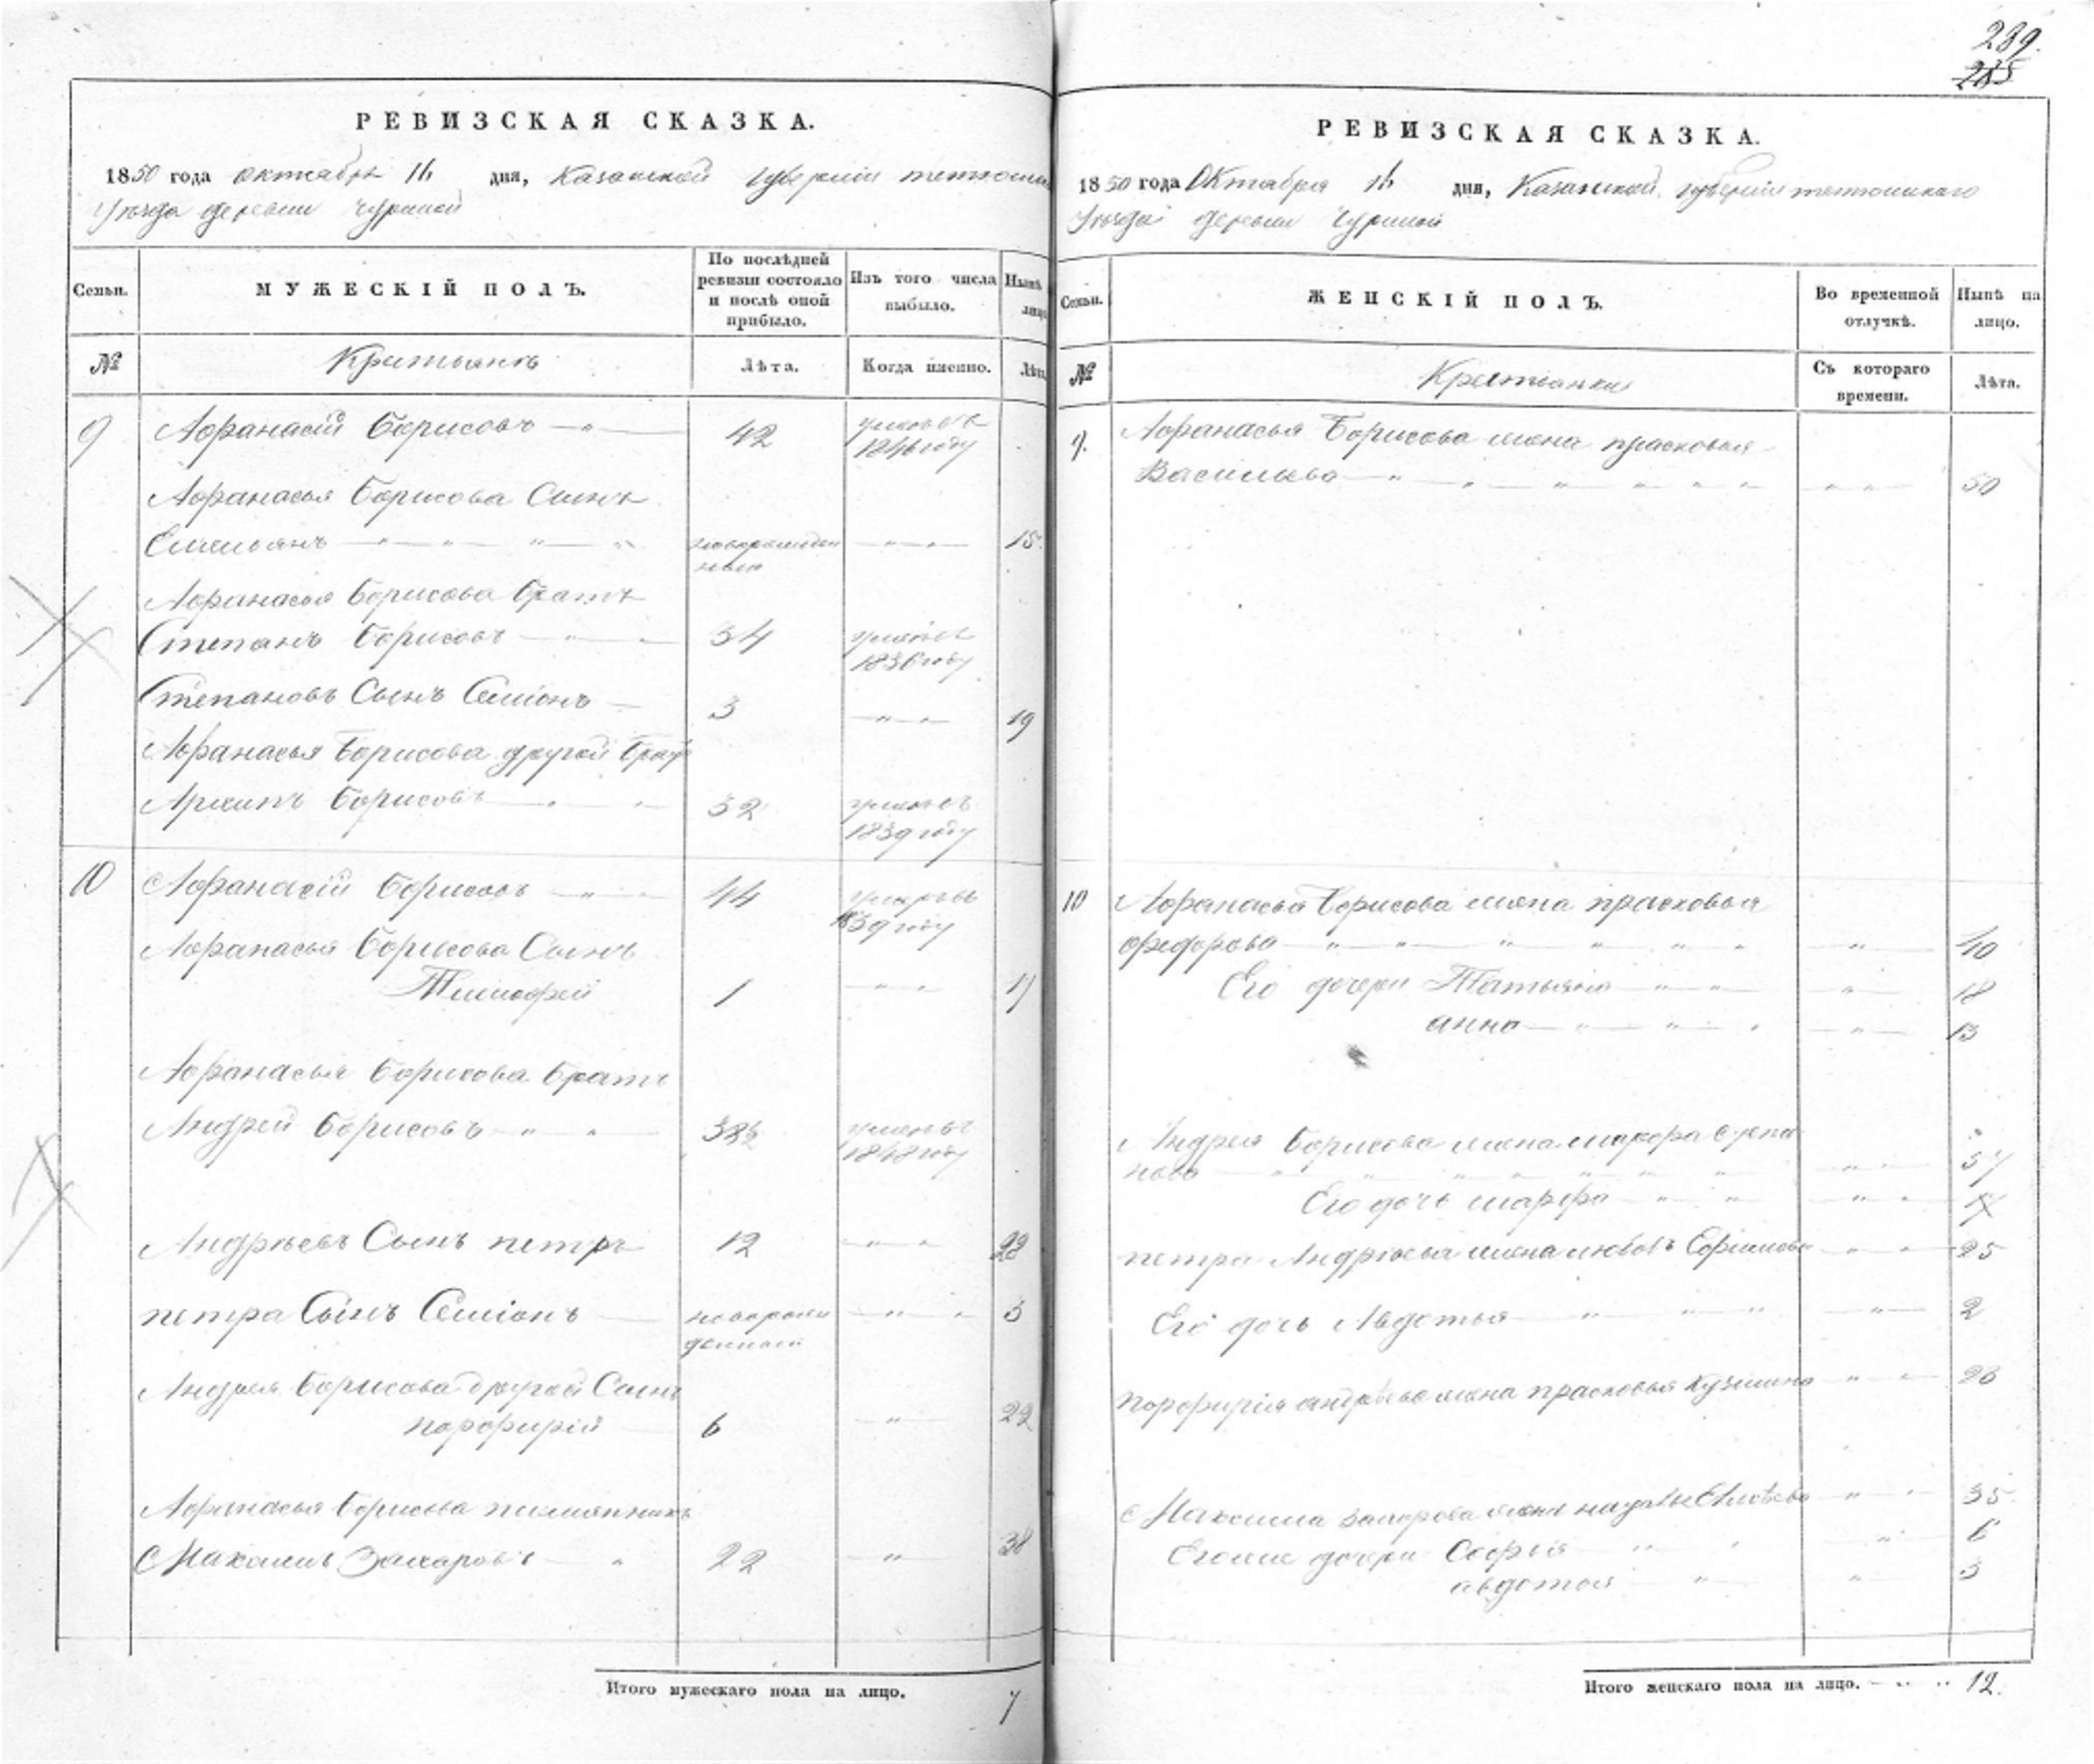 289.
285
РЕВИЗСКАЯ СКАЗКА.
1850 года октября 16 дня, Казанской губернии тетюшск
Уезда деревни чуриной
Семьи.
МУЖЕСКІЙ ПОЛЪ.
По послѣдней ревизіи состояло и послѣ оной прибыло.
Изъ того числа выбыло.
Нынѣ лицо
№
Крестьянъ
Лѣта.
Когда именно.
Лѣта
9 Афанасій Борисовъ 42 умеръ въ
1846 году
Афанасья Борисова Сынъ
Емельянъ новорожден 15
ный
Афанасья Борисова братъ
Степанъ Борисовъ 34
1836 году
Степановъ Сынъ Семіонъ 3 19
Афанасья Борисова другой брат
Архипъ Борисовъ 32
1839 году
10 Афанасій Борисовъ 44
1839 году
Афанасья Борисова Сынъ
Тимофей 1 17
Афанасья Борисова братъ
Андрей Борисовъ
1848 году
Андреевъ Сынъ петръ 12 28
петра Сынъ Семіонъ новорож 3
денный
Андрея Борисова другой Сынъ
порфирій 6 22
Афанасья Борисова племянникъ
Максимъ Захаровъ 22 38
Итого мужескаго пола на лицо. 7
РЕВИЗСКАЯ СКАЗКА.
1850 года Октября 16 дня, Казанской губернии тетюшскаго
Уезда деревни Чуриной
Семьи.
ЖЕНСКІЙ ПОЛЪ.
Во временной отлучкѣ.
Нынѣ на лицо.
№
Крестьянки
Съ котораго времени.
Лѣта.
9. Афанасья Борисова жена прасковья
Васильева 50
10 Афанасья Борисова жена прасковья
федорова 40
Его дочери Татьяна 18
анна 13
Андрея Борисова жена Степа
нова 57
Его дочь марфа
петра Андреева жена любовь Ефимова 25
Его дочь Авдотья 2
Порфирія андреева жена прасковья кузмина 26
Максима Захарова жена Елисеева 35
Егоже дочери Софья 6
авдотья 3
Итого женскаго пола на лицо. 12.